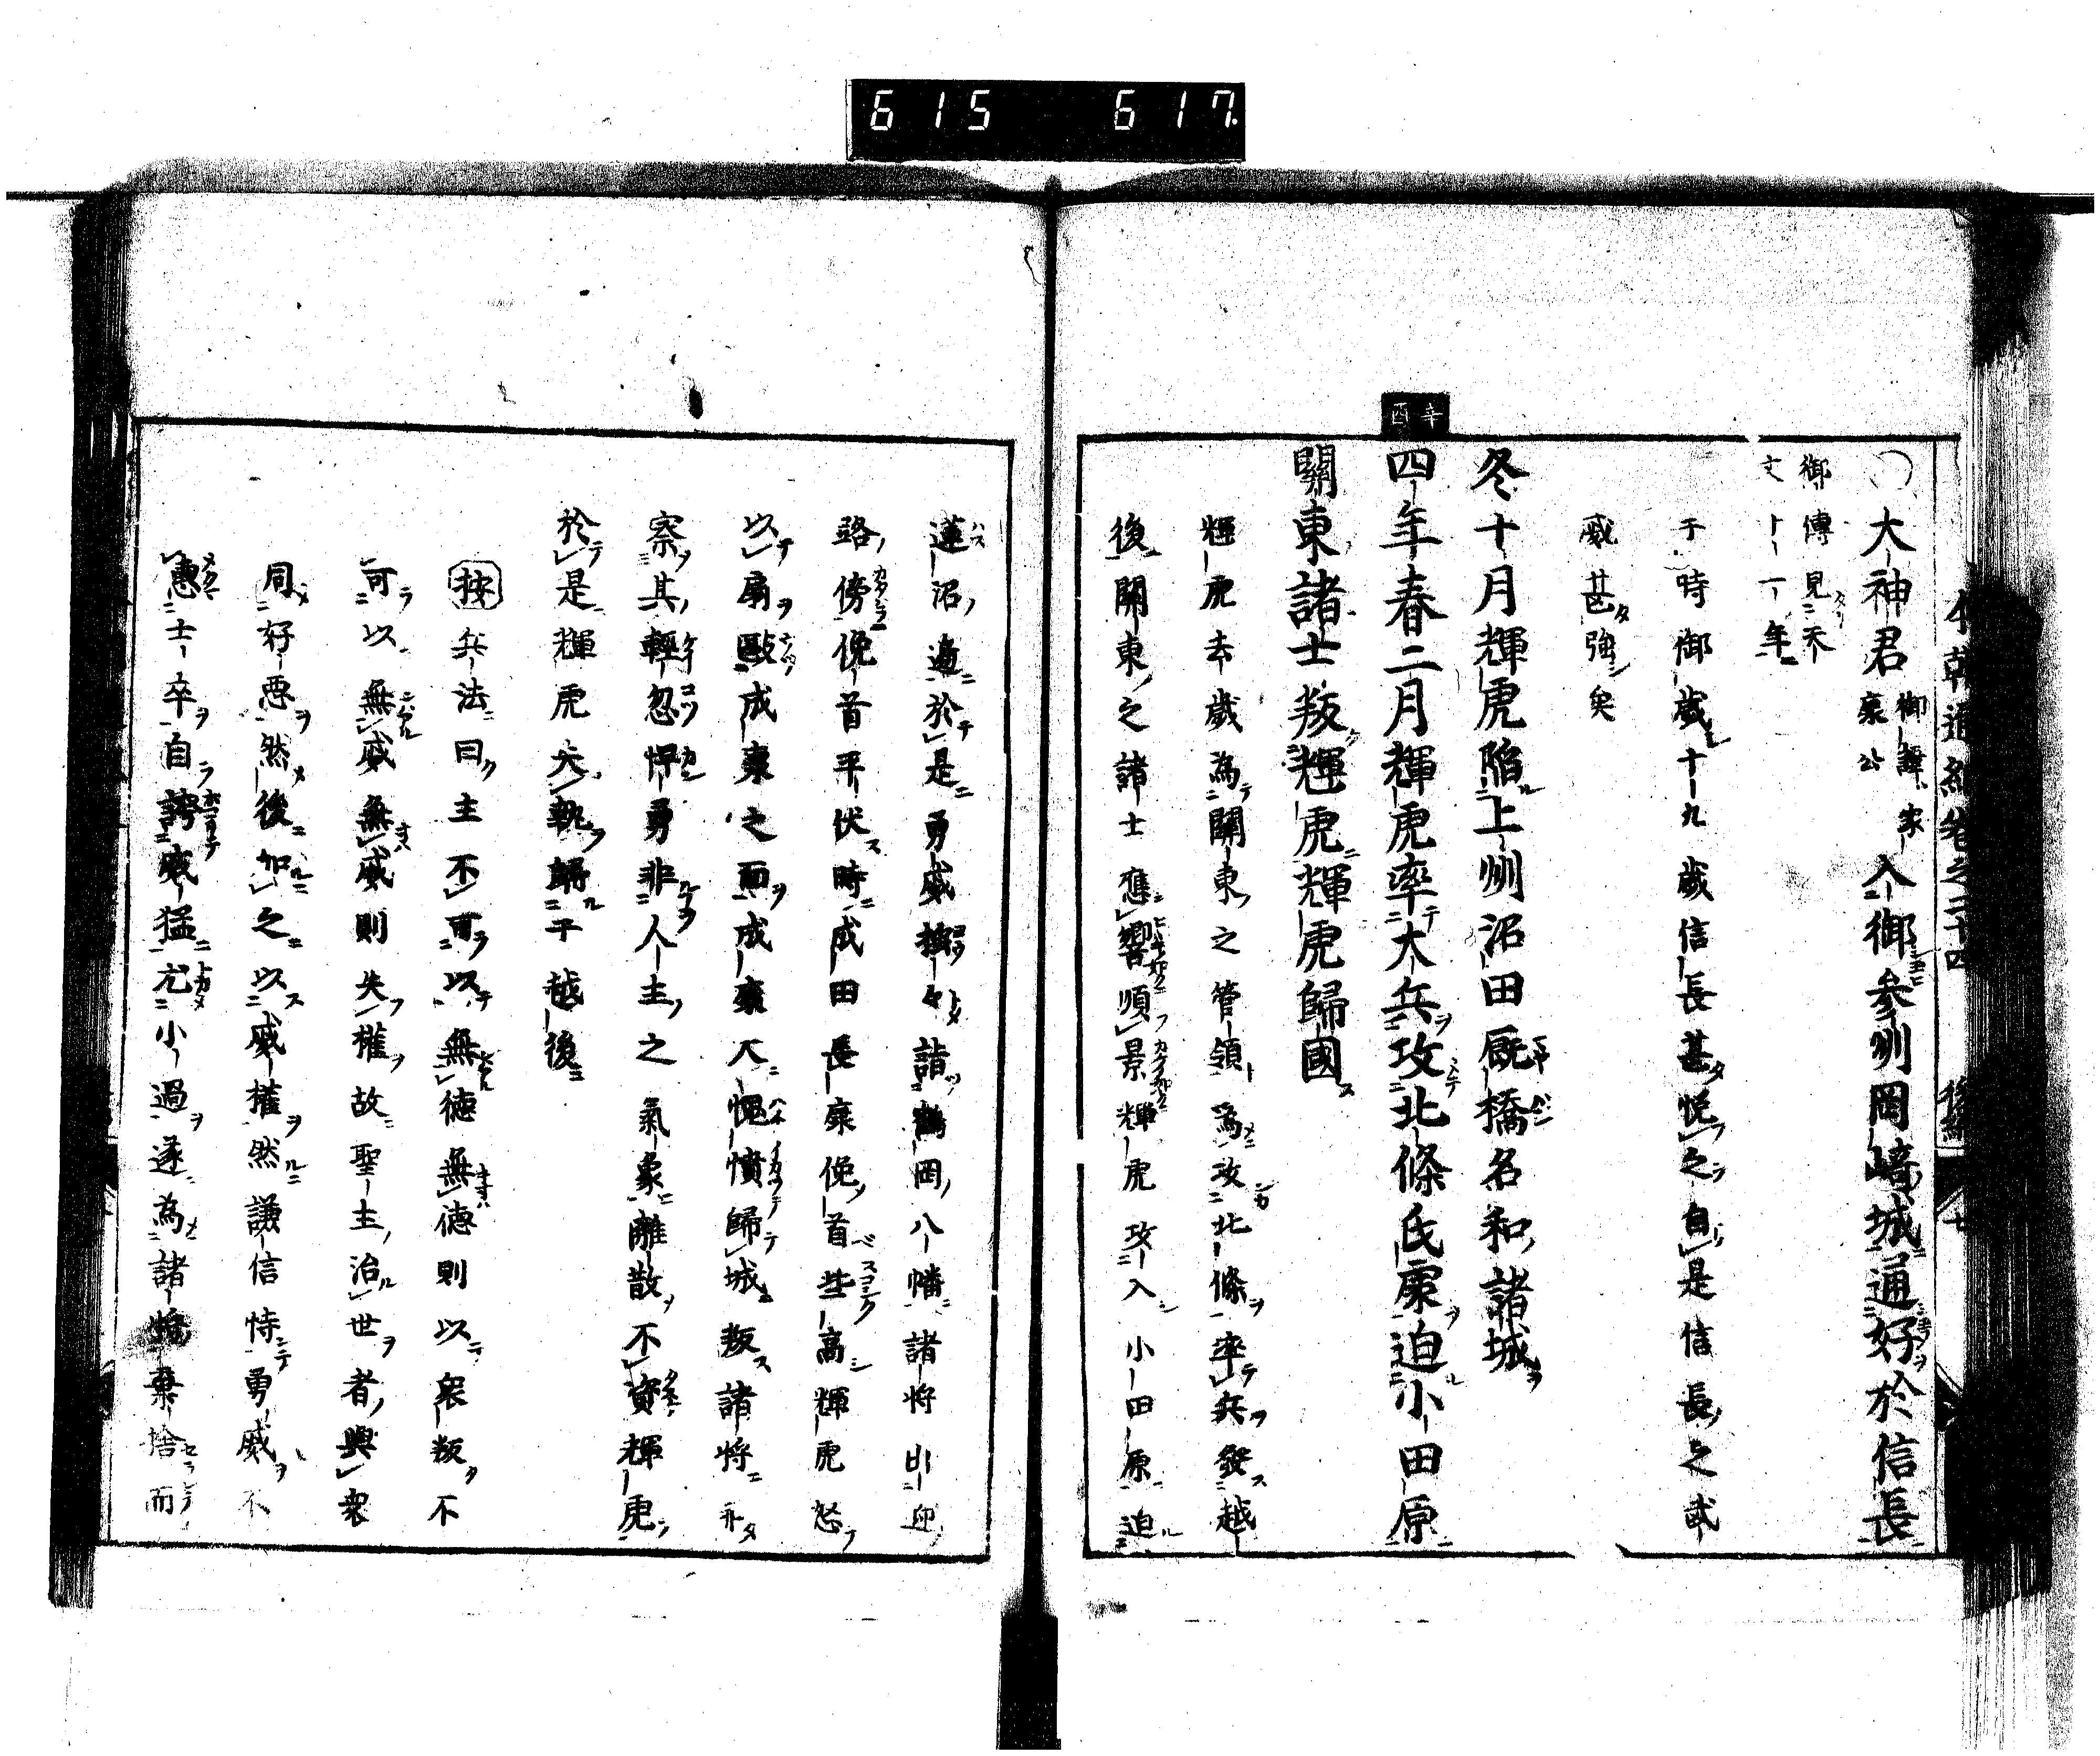 615 617
後編
七
○大神君
御諱家
康公
入御參州岡崎城通好於信長
御傳見天
文十一年
于時御歳十九歳信長甚悦之自是信長之武
威甚強矣
冬十月輝虎陥上州沼田厩橋名和諸城
辛酉
四年春二月輝虎率大兵攻北條氏康迫小田原
關東諸士叛輝虎輝虎歸國
輝虎去歳為關東之管領為攻北條率兵發越
後關東之諸士應響順景輝虎攻入小田原迫
蓮沼過於是勇威 々詣鶴岡八幡諸將出迎
路傍俛首平伏時成田長康俛首些高輝虎怒
以扇毆成康之面成康大愧憤歸城叛諸將亦
察其輕忽悍勇非人主之氣象離散不資輝虎
於是輝虎失執歸于越後
按兵法曰主不可以無德無德則以衆叛不
可以無威無威則失權故聖主治世者與衆
同好惡然後加之以威權然謙信恃勇威不
惠士卒自誇威猛尤小過遂為諸將棄捨而